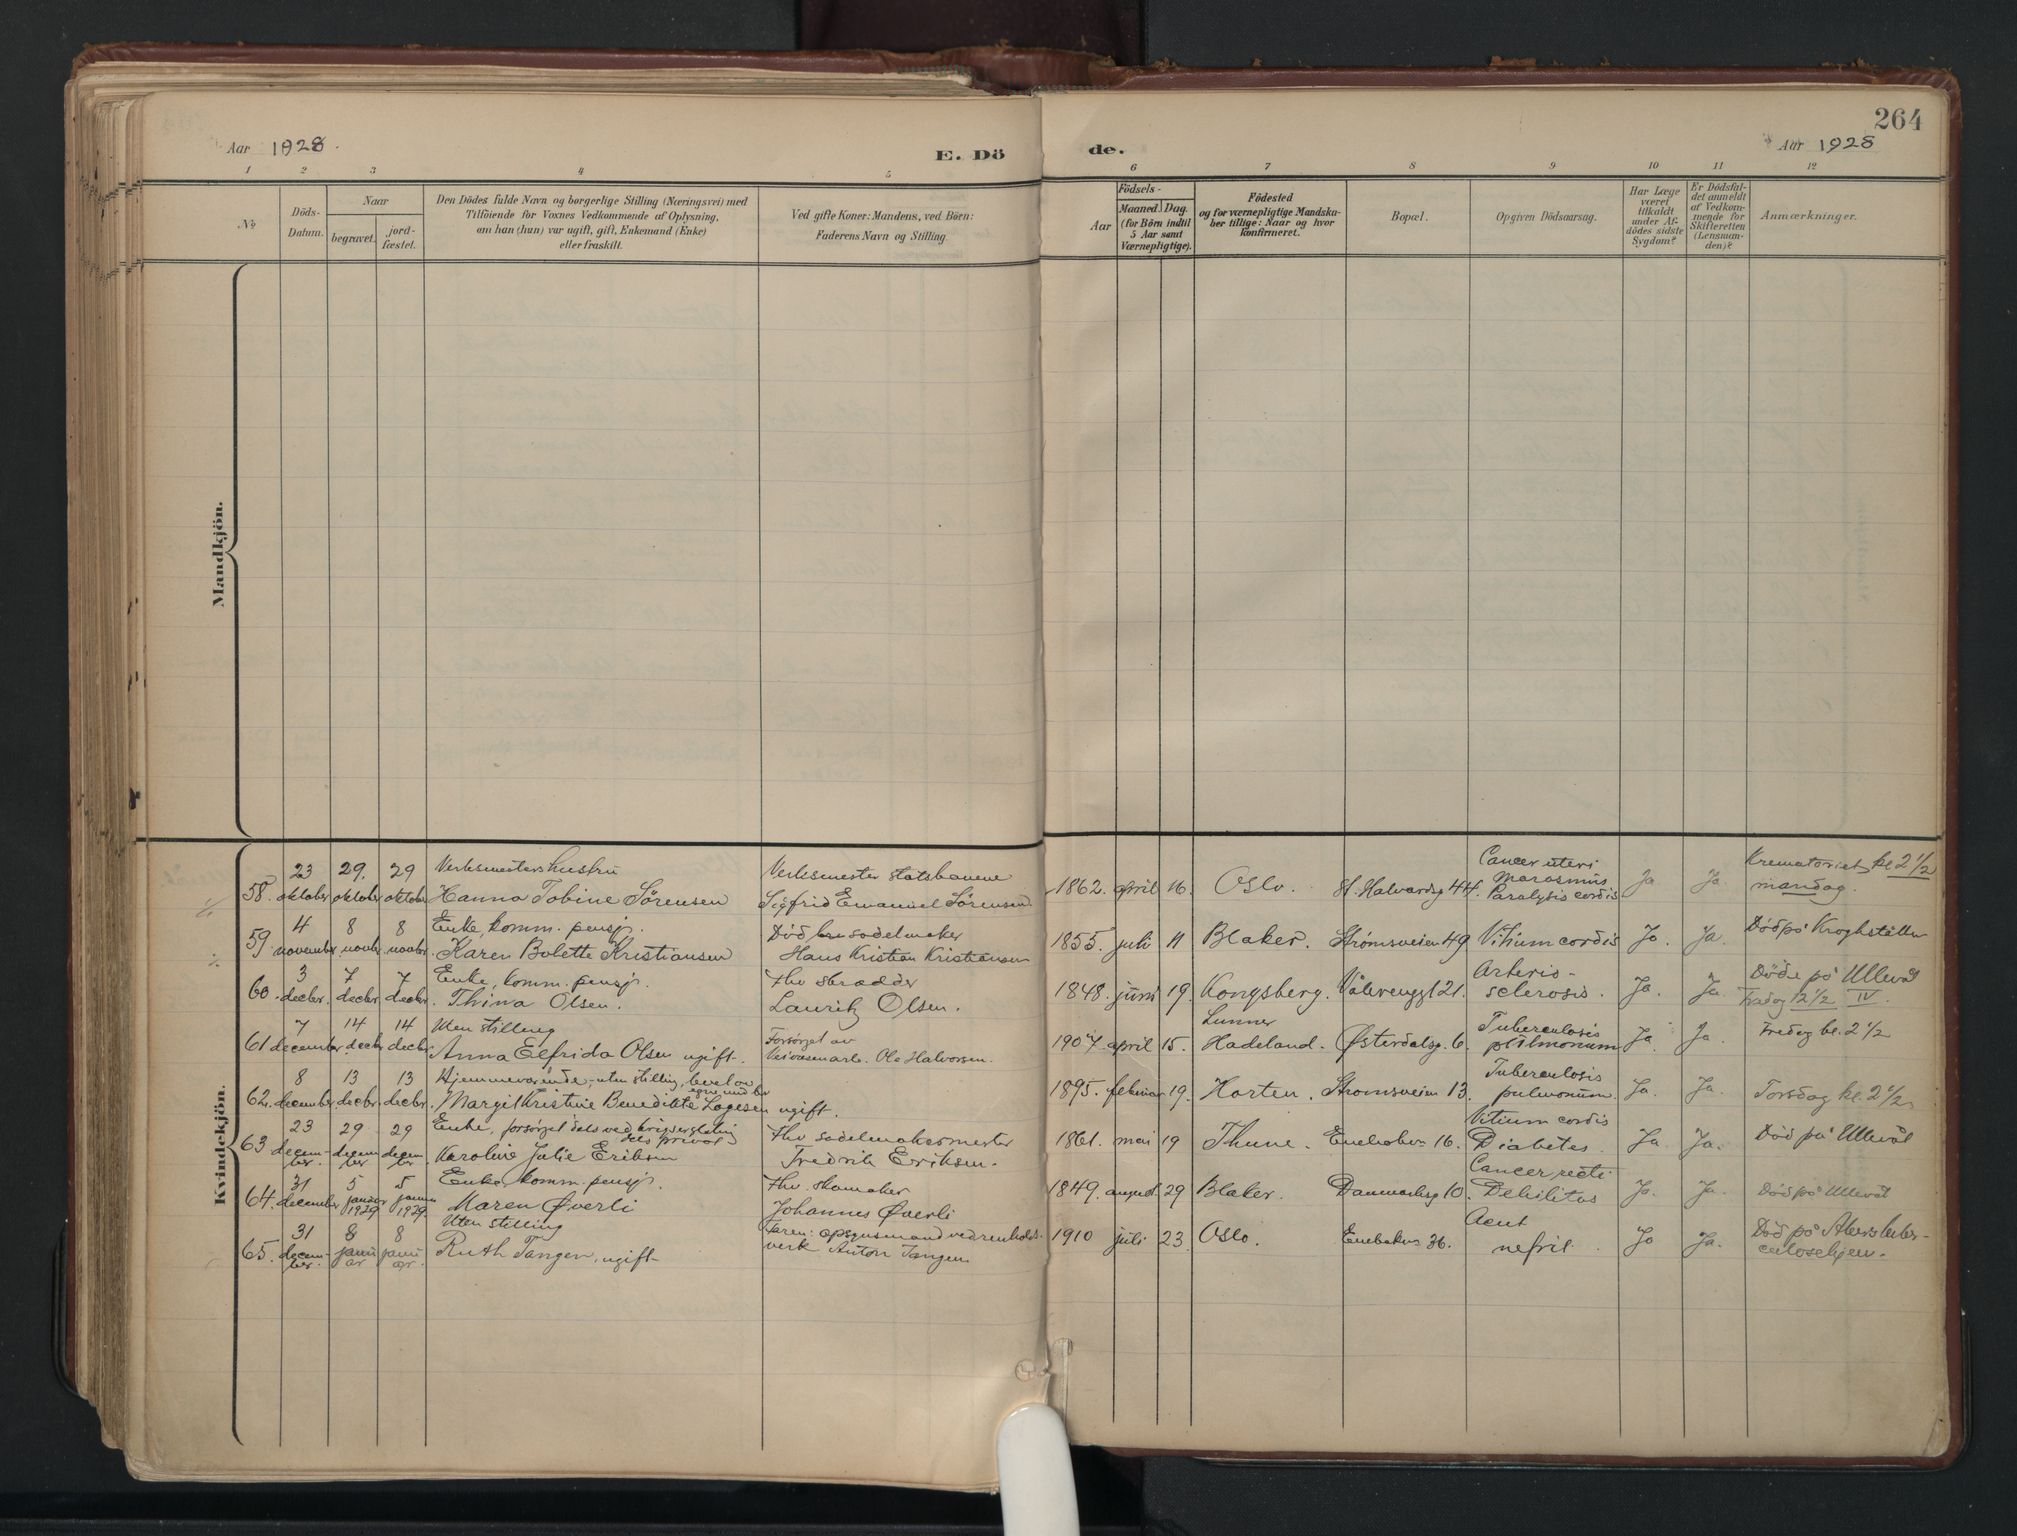 264
Aar 1928.
E. Dö
de.
Aar 1928
1 2 3 4 5
6 7 8 9 10 11 12
No
Döds-
Datum.
Naar
begravet.
jord-
fæstet.
Den Dödes fulde Navn og borgerlige Stilling (Næringsvei) med
Tilföiende for Voxnes Vedkommende af Oplysning,
om han (hun) var ugift, gift, Enkemand (Enke)
eller fraskilt.
Ved gifte Koner: Mandens, ved Börn:
Faderens Navn og Stilling.
Födsels-
Aar
Maaned. Dag.
(for Börn indtil
5 Aar samt
Værnepligtige).
Födested
og for værnepligtige Mandska-
ber tillige: Naar og hvor
konfirmeret.
Bopæl.
Opgiven Dödsaarsag.
Har Læge
været
tilkaldt
under Af-
dödes sidste
Sygdom?
Er Dödsfal-
det anmeldt
af Vedkom-
mende for
Skifteretten
(Lensman-
den)?
Anmærkninger.
Mandkjön.
Kvindekjön.
58. 23 oktober 29. oktober 29 oktober
Verksmesters hustru
Hanna Tobine Sørensen
Verksmester statsbanene
Sigfrid Emanuel Sørensen.
1862. april 16. Oslo. St. Halvardsg 44.
Cancer uteri
Marasmus
Paralysis cordis
Ja Ja
Krematoriet kl 2 1/2
mandag.
59. 4 november 8 novbr. 8 novbr.
Enke, komm. pensj.
Karen Bolette Kristiansen
Død sadelmaker
Hans Kristian Kristiansen
1855. juli 11 Blaker. Strømsveien 49 Vitium cordis Ja. Ja.
Død på Krogstøtten
60. 3 decbr. 7 decbr. 7 decbr.
Enke, komm. pensj.
Thina Olsen.
Fhv skrædder
Lauritz Olsen.
1848. juni 19. Kongsberg. Vålerenggt 21.
Arterio-
sclerosis.
Ja. Ja.
Døde på Ullevål
Fredag 12 1/2 IV.
61 7 december 14 decbr 14 decbr
Uten stilling
Anna Elfrida Olsen ugift.
Forsørget av
Ole Halvorsen.
1907. april 15.
Lunner
Hadeland. Østerdalsg. 6.
Tuberculosis
pulmonum
Ja. Ja.
Fredag kl. 2 1/2
62. 8 december 13 decbr. 13 decbr.
Hjemmeværende, uten stilling, levet av
egne midler
Margit Kristine Benedikte Lagesen ugift.
1895. februar 19. Horten. Strømsveien 13.
Tuberculosis
pulmonum
Ja. Ja.
Torsdag kl. 2 1/2
63 23 decem-
ber. 29 decem
ber 29 decem
ber.
Enke, forsørget dels ved
dels privat
Karoline Julie Eriksen
Fhv sadelmakermester
Fredrik Eriksen.
1861. mai 19 Thune. Enebakv. 16.
Vitium cordis
Diabetes.
Ja. Ja.
Død på Ullevål
64. 31 december 5 januar 1929 5 januar 1929.
Enke, komm. pensj.
Maren Øverli
Fhv. skomaker
Johannes Øverli
1849. august 29 Blaker. Danmarksg 10.
Cancer recti
Debilitas
Ja. Ja.
Død på Ullevål
65. 31 decem-
ber. 8 janu
ar 8 janu
ar.
Uten stilling
Ruth Tangen, ugift
Faren: opsynsmand ved renholds-
verk Anton Tangen
1910 juli 23. Oslo. Enebakv. 36.
Acut
nefrit.
Ja Ja.
Død på Akers tuber-
culosehjem.